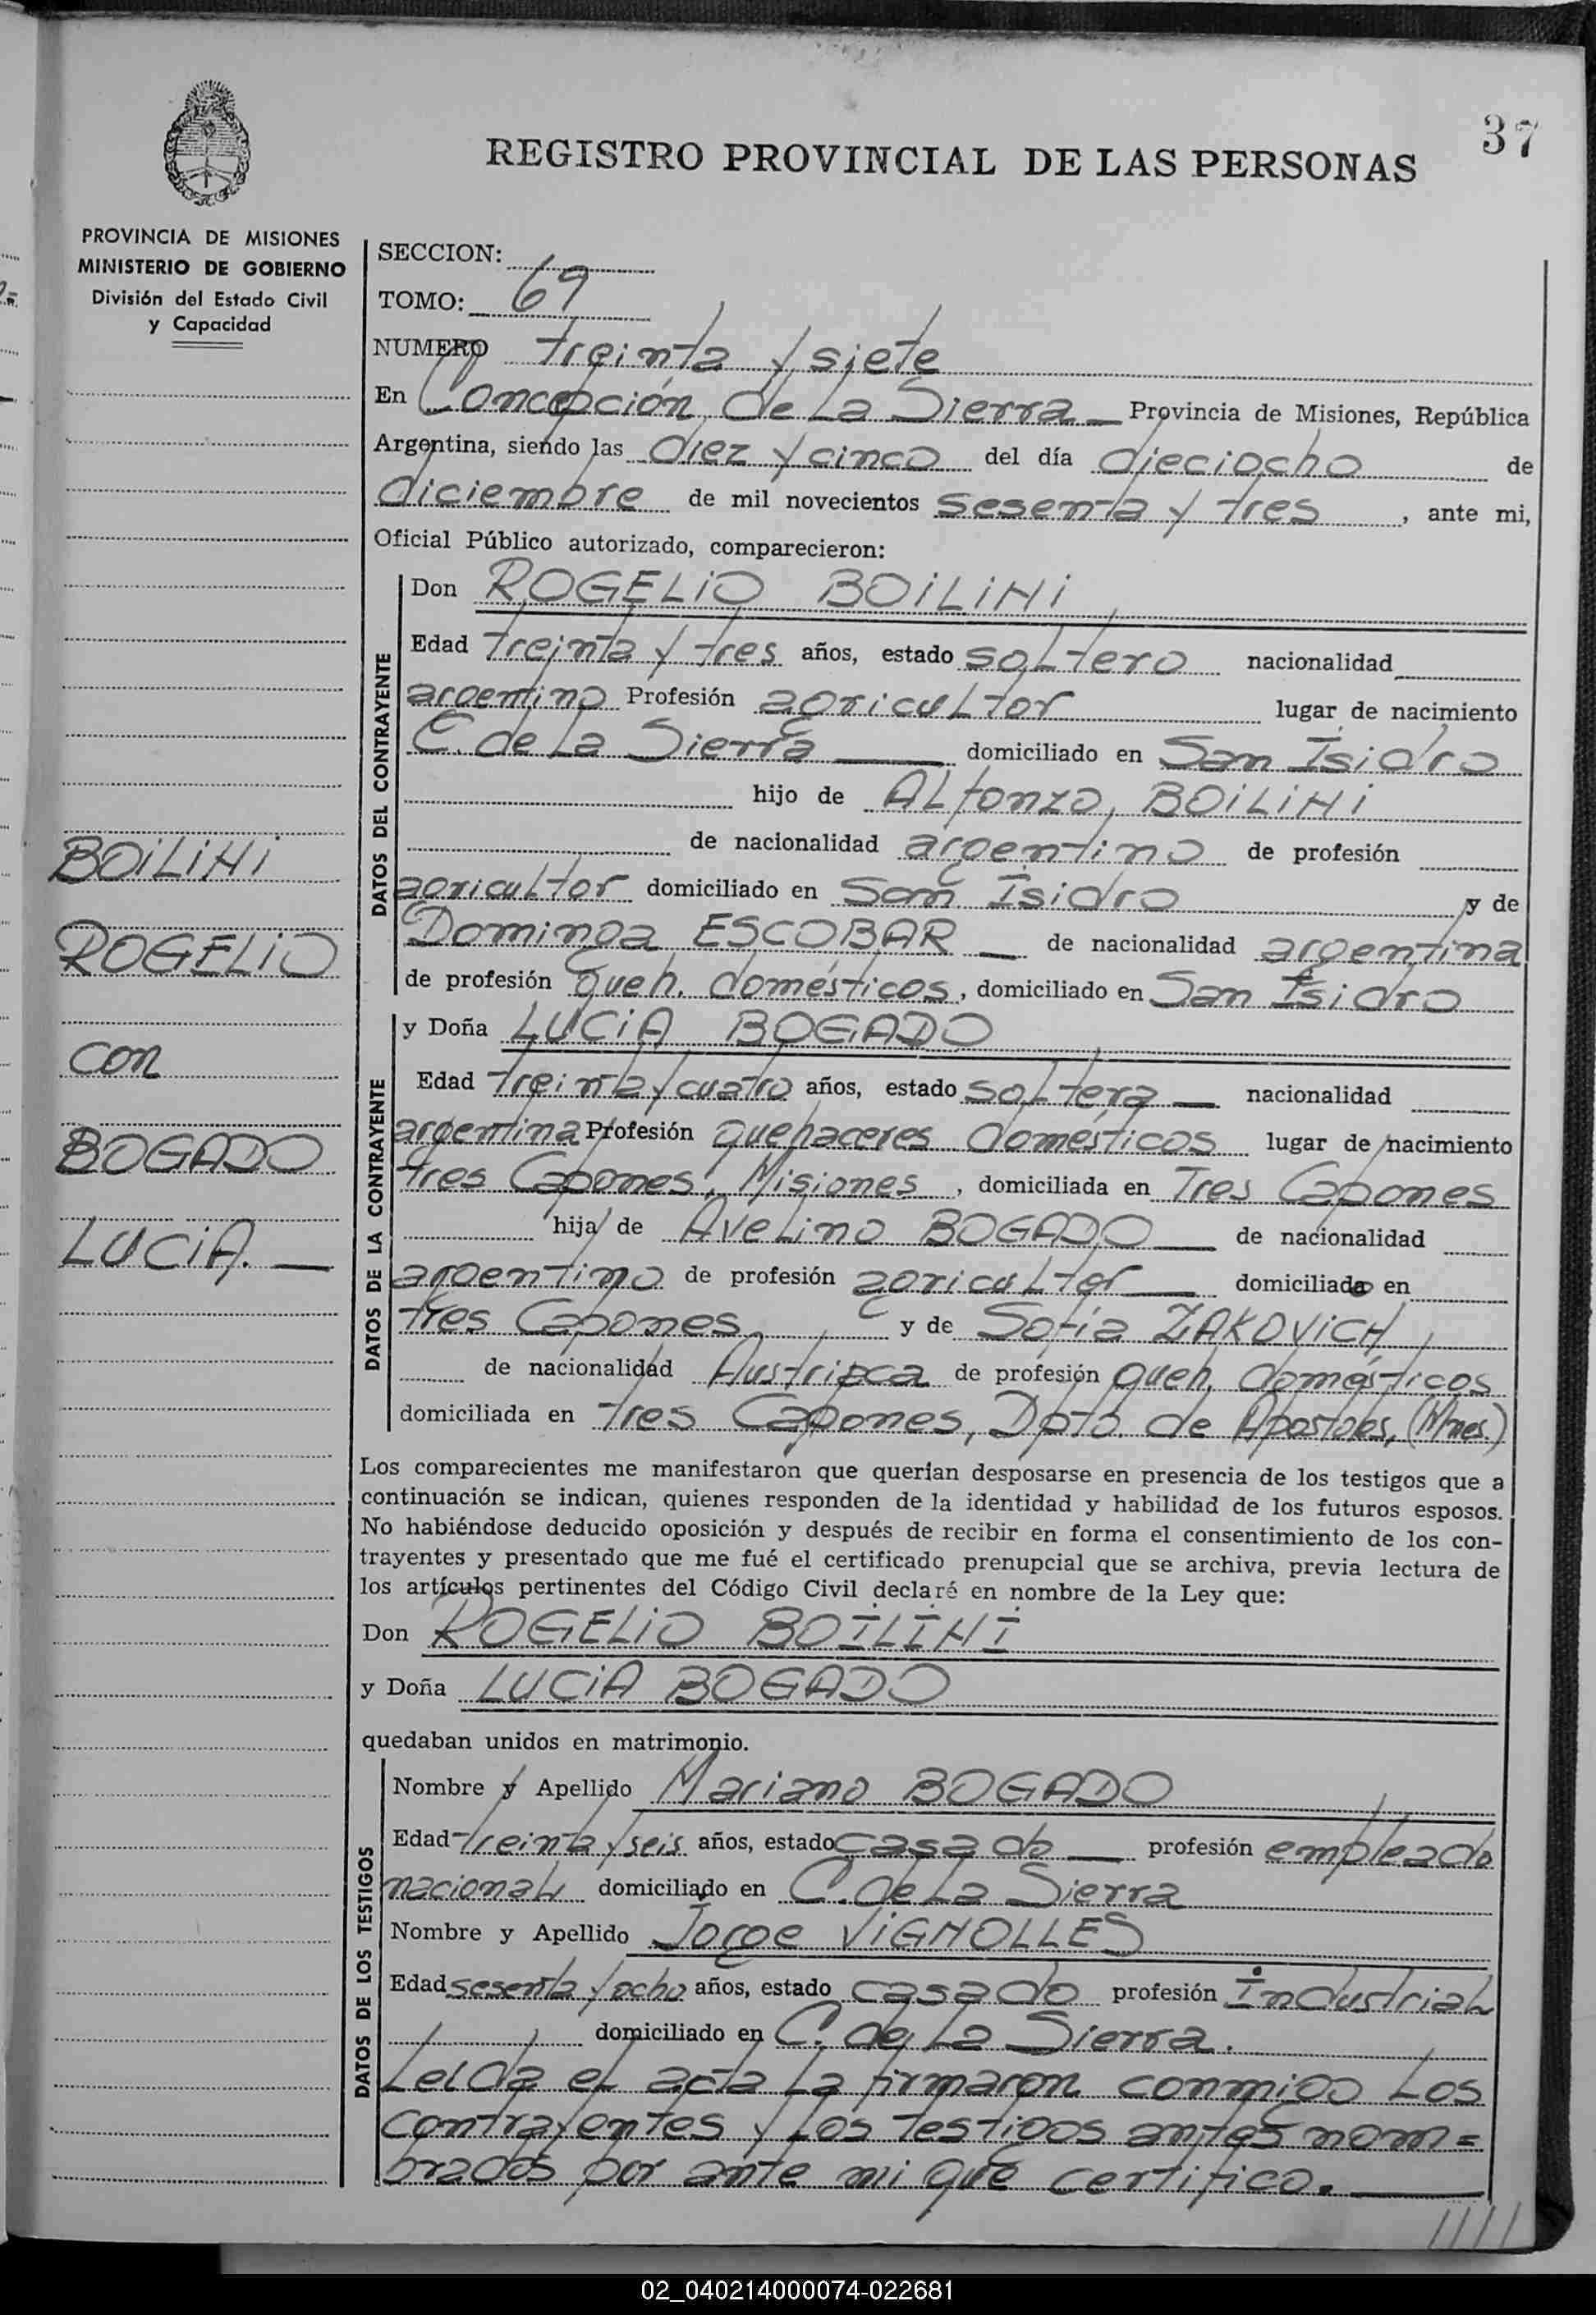 37
REGISTRO PROVINCIAL DE LAS PERSONAS
PROVINCIA DE MISIONES
MINISTERIO DE GOBIERNO
División del Estado Civil
y Capacidad
BOiLiNi
ROGELiO
con
BOGADO
LUCiA. —
SECCION:
TOMO: 69
NUMERO treinta y siete
En Concepción de La Sierra — Provincia de Misiones, República
Argentina, siendo las diez y cinco del día dieciocho de
diciembre de mil novecientos sesenta y tres, ante mi,
Oficial Público autorizado, comparecieron:
DATOS DEL CONTRAYENTE
Don ROGELiO BOiLiNi
Edad treinta y tres años, estado soltero nacionalidad
argentino Profesión agricultor lugar de nacimiento
C. de La Sierra — domiciliado en San Isidro
hijo de Alfonzo BOiLiNi
de nacionalidad argentino de profesión
agricultor domiciliado en San Isidro y de
Dominga ESCOBAR — de nacionalidad argentina
de profesión queh. domésticos, domiciliado en San Isidro
DATOS DE LA CONTRAYENTE
y Doña LUCiA BOGADO
Edad treinta y cuatro años, estado soltera — nacionalidad
argentina Profesión quehaceres domésticos lugar de nacimiento
tres Capones, Misiones, domiciliada en Tres Capones
hija de Avelino BOGADO — de nacionalidad
argentino de profesión agricultor — domiciliado en
tres Capones y de Sofía ZAKOViCH
de nacionalidad Austriaca de profesión queh. domésticos
domiciliada en tres Capones, Dpto. de Apostoles, (Mnes.)
Los comparecientes me manifestaron que querían desposarse en presencia de los testigos que a
continuación se indican, quienes responden de la identidad y habilidad de los futuros esposos.
No habiéndose deducido oposición y después de recibir en forma el consentimiento de los con-
trayentes y presentado que me fué el certificado prenupcial que se archiva, previa lectura de
los artículos pertinentes del Código Civil declaré en nombre de la Ley que:
Don ROGELiO BOILINI
y Doña LUCiA BOGADO
quedaban unidos en matrimonio.
DATOS DE LOS TESTIGOS
Nombre y Apellido Mariano BOGADO
Edad treinta y seis años, estado casado — profesión empleado
nacional domiciliado en C. de La Sierra
Nombre y Apellido Jorge ViGNOLLES
Edad sesenta y ocho años, estado casado profesión industrial
domiciliado en C. de La Sierra.
Leida el acta la firmaron conmigo los
contrayentes y los testigos antes nom=
brados por ante mi que certifico. —
////
02_040214000074-022681